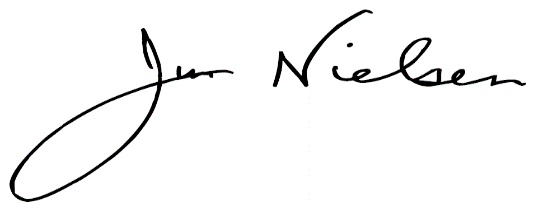 Jim Nielsen